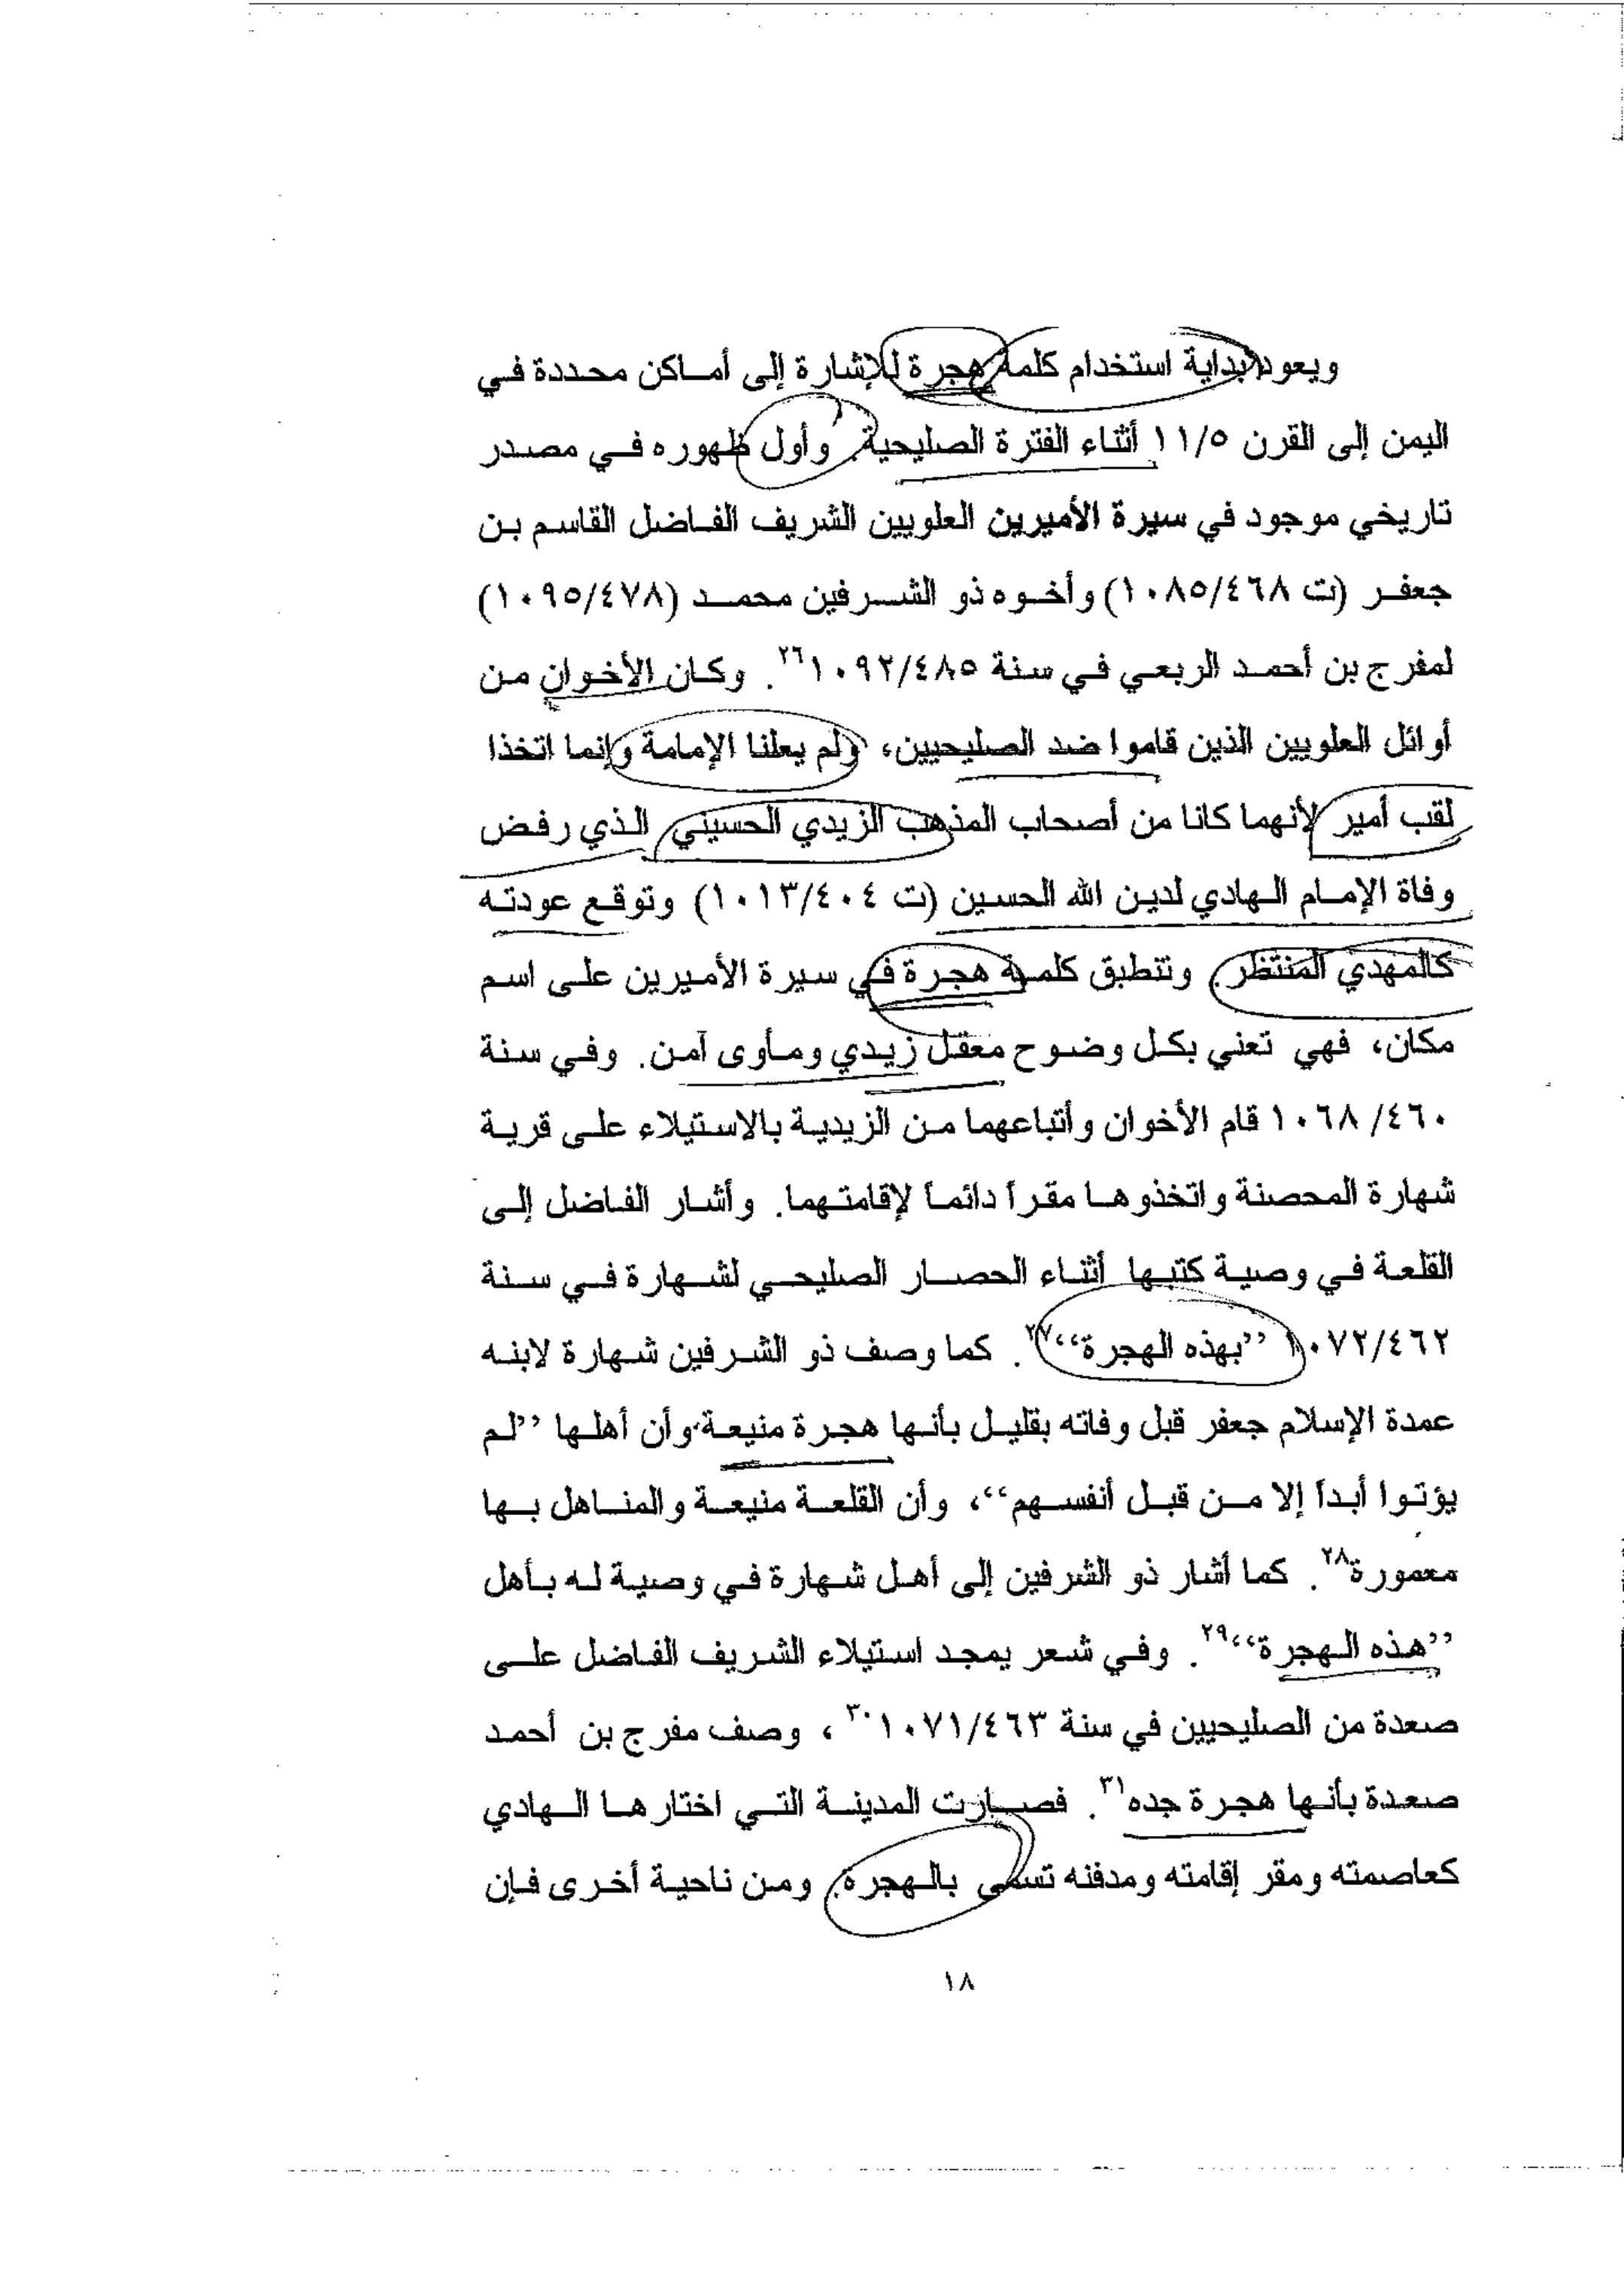 ويعود بداية استخدام كلمة هجرة للإشارة إلى أماكن محددة في
اليمن إلى القرن ١١/٥ أثناء الفترة الصليحية. وأول ظهوره في مصدر
تاريخي موجود في سيرة الأميرين العلويين الشريف الفاضل القاسم بن
جعفر (ت ١٠٨٥/٤٦٨) وأخوه ذو الشرفين محمد (١٠٩٥/٤٧٨)
لمفرج بن أحمد الربعي في سنة ١٠٩٢/٤٨٥٢٦. وكان الأخوان من
أوائل العلويين الذين قاموا ضد الصليحيين، ولم يعلنا الإمامة وإنما اتخذا
لقب أمير لأنهما كانا من أصحاب المذهب الزيدي الحسيني الذي رفض
وفاة الإمام الهادي لدين الله الحسين (ت ١٠١٣/٤٠٤) وتوقع عودته
كالمهدي المنتظر. وتنطبق كلمة هجرة في سيرة الأميرين على اسم
مكان، فهي تعني بكل وضوح معقل زيدي ومأوى آمن. وفي سنة
١٠٦٨/٤٦٠ قام الأخوان وأتباعهما من الزيدية بالاستيلاء على قرية
شهارة المحصنة واتخذوها مقراً دائماً لإقامتهما. وأشار الفاضل إلى
القلعة في وصية كتبها أثناء الحصار الصليحي لشهارة في سنة
١٠٧٢/٤٦٢ ’’بهذه الهجرة‘‘٢٧. كما وصف ذو الشرفين شهارة لابنه
عمدة الإسلام جعفر قبل وفاته بقليل بأنها هجرة منيعة وأن أهلها ’’لم
يؤتوا أبداً إلا من قبل أنفسهم‘‘، وأن القلعة منيعة والمناهل بها
معمورة٢٨. كما أشار ذو الشرفين إلى أهل شهارة في وصية له بأهل
’’هذه الهجرة‘‘٢٩. وفي شعر يمجد استيلاء الشريف الفاضل على
صعدة من الصليحيين في سنة ١٠٧١/٤٦٣٣٠، وصف مفرج بن أحمد
صعدة بأنها هجرة جده٣١. فصارت المدينة التي اختارها الهادي
كعاصمته ومقر إقامته ومدفنه تسمى بالهجرة. ومن ناحية أخرى فإن
١٨